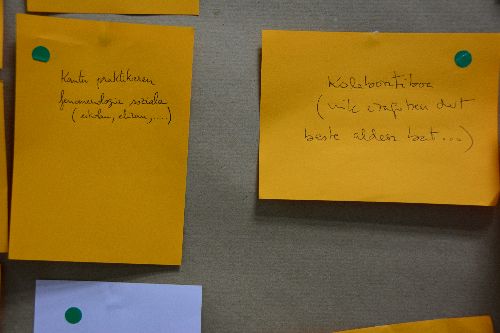 Kantu praktikaren
fenomenologia soziala
(eskolan, elizan, ....)
Kolaboratiboa
(nik ezagutzen dut
beste alderi bat...)